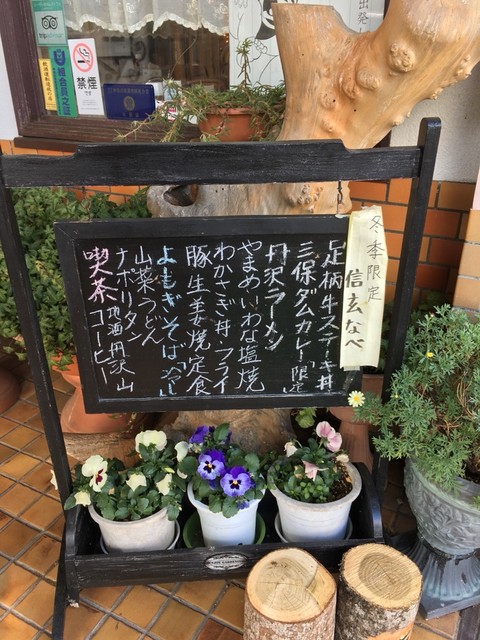 冬季限定
信玄なべ
足柄牛ステーキ丼
三保ダムカレー「限定」
丹沢ラーメン
やまめ・いわな塩焼
わかさぎ丼・フライ
豚生姜焼定食
よもぎそば
山菜うどん
ナポリタン
地酒丹沢山
喫茶 コーヒー
禁煙
です
組合員之証
tripadvisor
出発